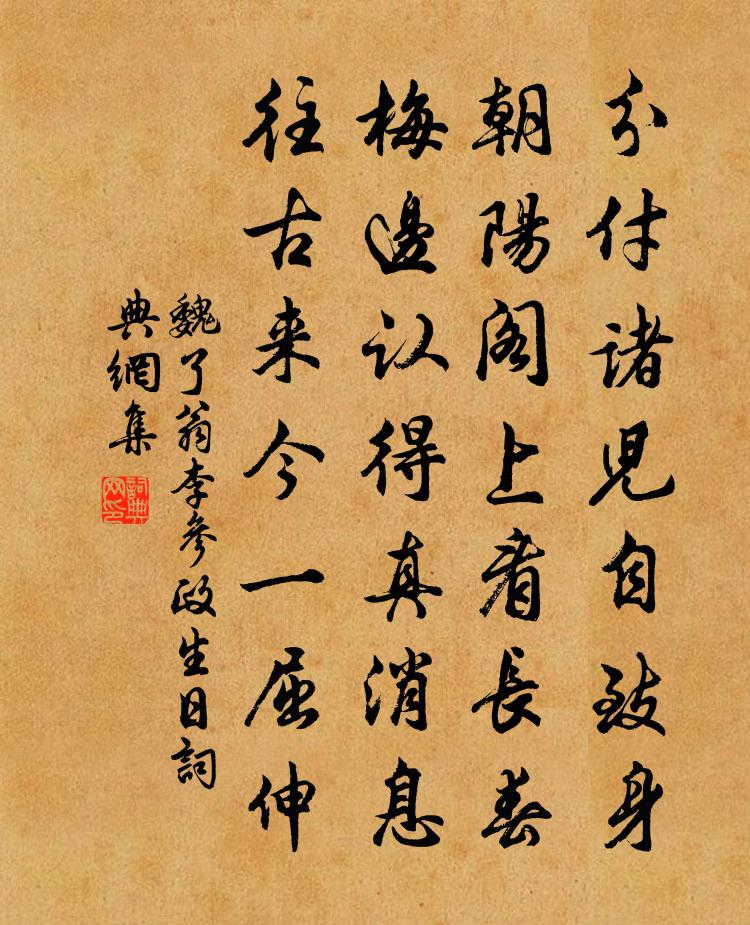 分付諸児自致身
朝陽阁上看長春
梅邊认得真消息
往古来今一屈伸
魏了翁李參政生日詞
典網集
詞典
网印